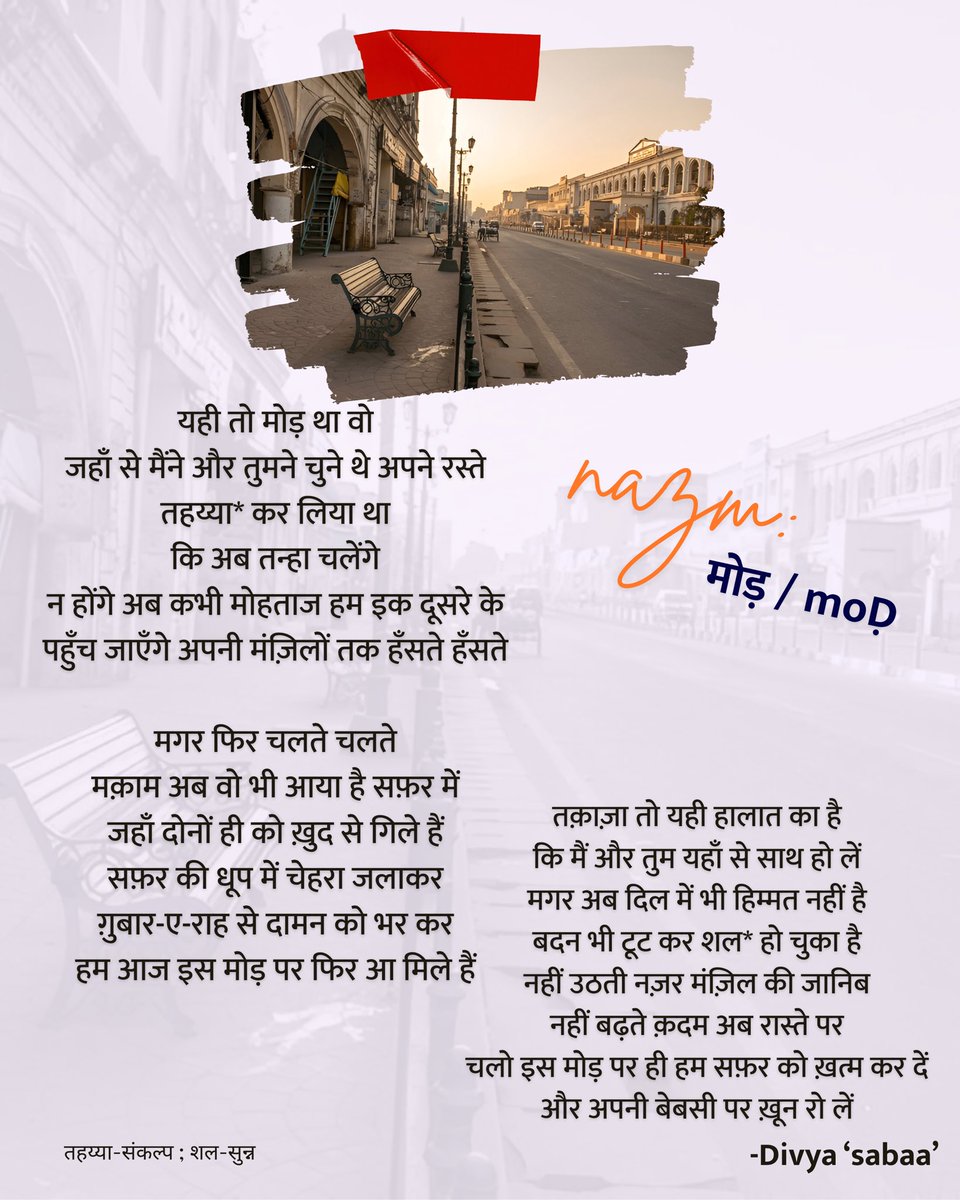 nazm:
मोड़ / moḌ
यही तो मोड़ था वो
जहाँ से मैंने और तुमने चुने थे अपने रस्ते
तहय्या* कर लिया था
कि अब तन्हा चलेंगे
न होंगे अब कभी मोहताज हम इक दूसरे के
पहुँच जाएँगे अपनी मंज़िलों तक हँसते हँसते
मगर फिर चलते चलते
मक़ाम अब वो भी आया है सफ़र में
जहाँ दोनों ही को ख़ुद से गिले हैं
सफ़र की धूप में चेहरा जलाकर
ग़ुबार-ए-राह से दामन को भर कर
हम आज इस मोड़ पर फिर आ मिले हैं
तक़ाज़ा तो यही हालात का है
कि मैं और तुम यहाँ से साथ हो लें
मगर अब दिल में भी हिम्मत नहीं है
बदन भी टूट कर शल* हो चुका है
नहीं उठती नज़र मंज़िल की जानिब
नहीं बढ़ते क़दम अब रास्ते पर
चलो इस मोड़ पर ही हम सफ़र को ख़त्म कर दें
और अपनी बेबसी पर ख़ून रो लें
-Divya ‘sabaa’
तहय्या-संकल्प ; शल-सुन्न